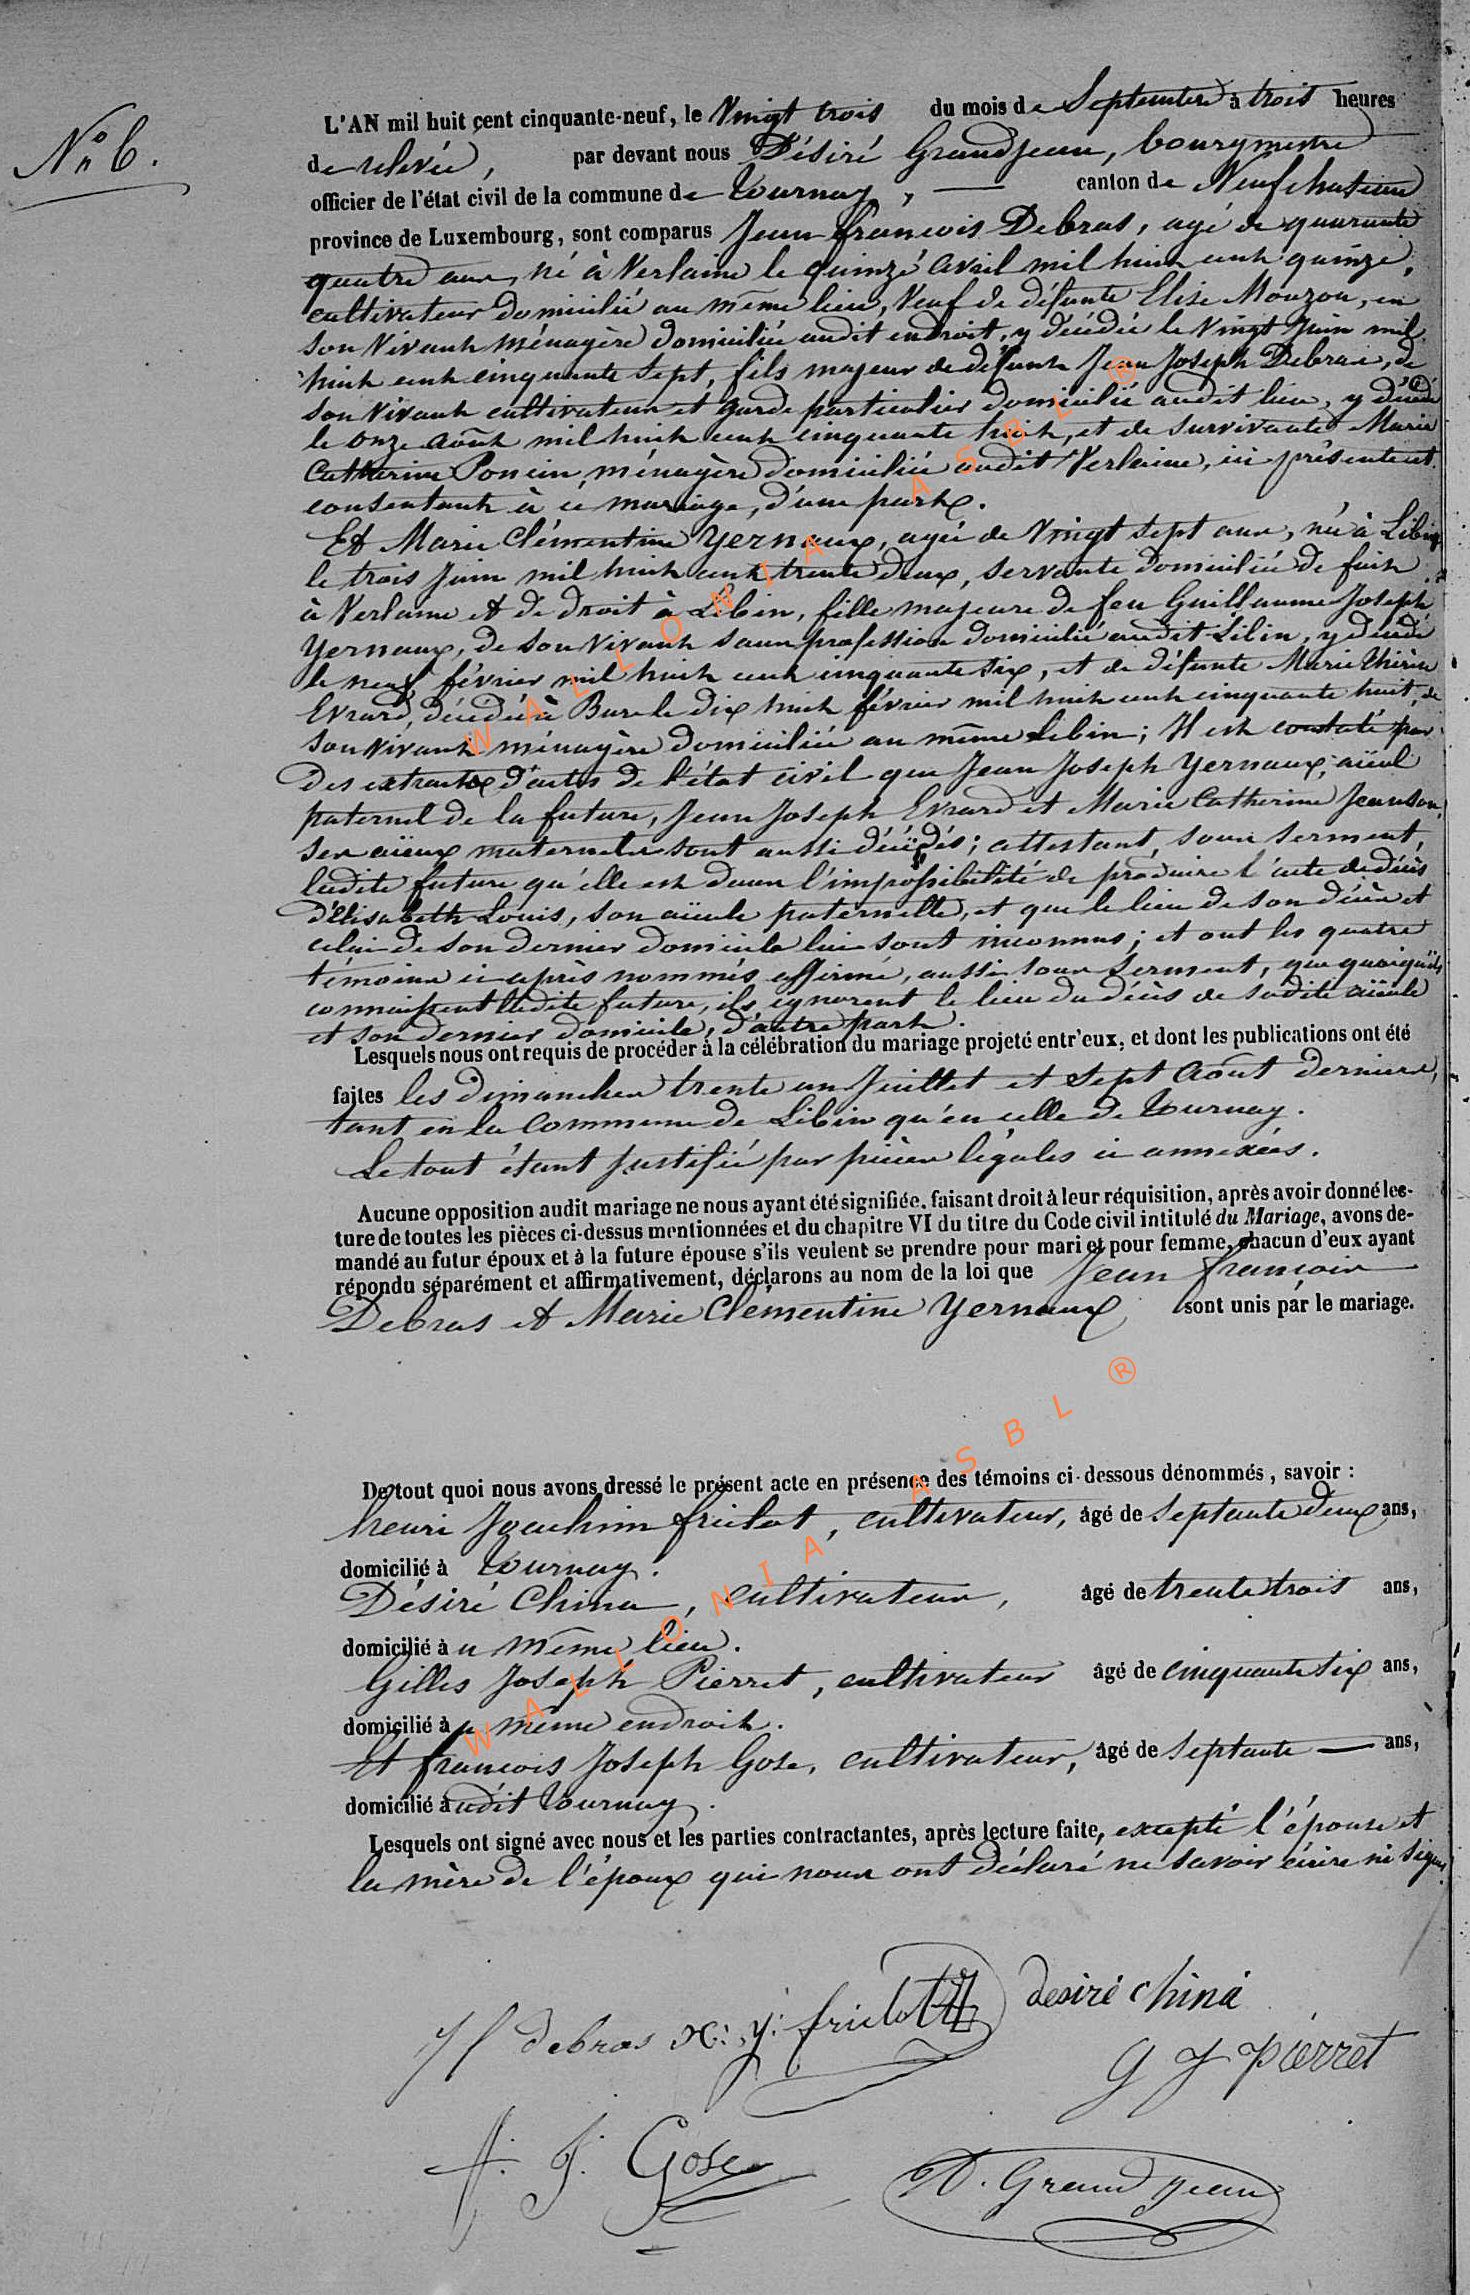 N° 6.
L'AN mil huit cent cinquante-neuf, le Vingt trois du mois de Septembre à trois heures
de relevée, par devant nous Désiré Grandjean, bourgmestre
officier de l'état civil de la commune de Tournay, — canton de Neufchateau
province de Luxembourg, sont comparus Jean françois Debras, agé de quarante
quatre ans, né à Verlaine le quinze avril mil huit cent quinze,
cultivateur domicilié au même lieu, Veuf de défunte Elise Mouzon, en
son Vivant ménagère domiciliée audit endroit, y décédée le Vingt Juin mil
huit cent cinquante sept, fils majeur de défunt Jean Joseph Debras, de
son vivant cultivateur et garde particulier domicilié audit lieu, y décédé
le onze août mil huit cent cinquante huit, et de survivante Marie
Catherine Poncin, ménagère domiciliée audit Verlaine, ici présente et
consentant à ce mariage, d'une part.
Et Marie Clémentine Yernaux, agée de Vingt sept ans, née à Libin
le trois Juin mil huit cent trente deux, servante domiciliée de fait
à Verlaine et de droit à Libin, fille majeure de feu Guillaume Joseph
Yernaux, de son vivant sans profession domicilié audit Libin, y décédé
le neuf février mil huit cent cinquante six, et de défunte Marie Thérèse
Evrard, décédée à Bure le dix huit février mil huit cent cinquante huit, de
son vivant ménagère domiciliée au même Libin; Il est constaté par
des extraits d'actes de l'état civil que Jean Joseph Yernaux, aïeul
paternel de la future, Jean Joseph Evrard et Marie Catherine Jeanson,
ses aïeux maternels sont aussi décédés; attestant, sous serment,
ladite future qu'elle est dans l'impossibilité de produire l'acte de décès
d'Elisabeth Louis, son aïeule paternelle, et que le lieu de son décès et
celui de son dernier domicile lui sont inconnus; et ont les quatre
témoins ci après nommés affirmé, aussi sous serment, que quoiqu'ils
connaissent ladite future, ils ignorent le lieu du décès de sadite aïeule
et son dernier domicile, d'autre part.
Lesquels nous ont requis de procéder à la célébration du mariage projeté entr'eux, et dont les publications ont été
faites les dimanches trente un Juillet et sept Août derniers,
tant en la Commune de Libin qu'en celle de Tournay.
Le tout étant justifié par pièces légales ci annexées.
Aucune opposition audit mariage ne nous ayant été signifiée, faisant droit à leur réquisition, après avoir donné lec-
ture de toutes les pièces ci-dessus mentionnées et du chapitre VI du titre du Code civil intitulé du Mariage, avons de-
mandé au futur époux et à la future épouse s'ils veulent se prendre pour mari et pour femme, chacun d'eux ayant
répondu séparément et affirmativement, déclarons au nom de la loi que Jean françois
Debras et Marie Clémentine Yernaux sont unis par le mariage.
De tout quoi nous avons dressé le présent acte en présence des témoins ci-dessous dénommés, savoir :
henri Joachim frielot, cultivateur, âgé de septante deux ans,
domicilié à Tournay.
Désiré China, cultivateur, âgé de trente trois ans,
domicilié à u même lieu.
Gilles Joseph Pierret, cultivateur âgé de cinquante six ans,
domicilié à u même endroit.
Et françois Joseph Gose, cultivateur, âgé de septante — ans,
domicilié à udit Tournay.
Lesquels ont signé avec nous et les parties contractantes, après lecture faite, excepté l'épouse et
la mère de l'époux qui nous ont déclaré ne savoir écrire ni signer.
J f debras x: j: frielot desiré china
G J pierret
f. J. Gose D. Grandjean
WALLONIA ASBL ®
WALLONIA ASBL ®